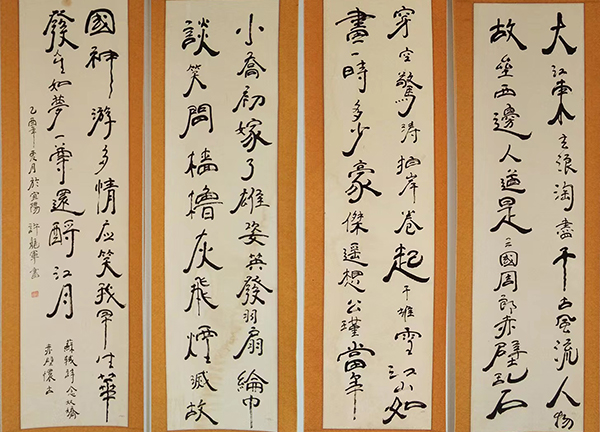 大江東去浪淘盡千古風流人物
故壘西邊人道是三國周郎赤壁乱石
穿空驚濤拍岸卷起千堆雪江山如
畫一時多少豪傑遥想公瑾當年
小喬初嫁了雄姿英發羽扇綸巾
談笑間檣櫓灰飛煙滅故
國神游多情应笑我早生華
發人生如夢一尊還酹江月
蘇軾詞念奴嬌
赤壁懷古
乙酉年 月於宜陽 許龍軍書